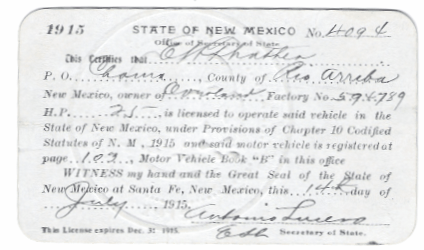 1915 STATE OF NEW MEXICO No. 4094
Office of Secretary of State
This Certifies that
P. O. Chama, County of Rio Arriba
New Mexico, owner of Overland Factory No.
H. P. 25 is licensed to operate said vehicle in the
State of New Mexico, under Provisions of Chapter 10 Codified
Statutes of N. M. 1915 and said motor vehicle is registered at
page 102, Motor Vehicle Book "B" in this office
WITNESS my hand and the Great Seal of the State of
New Mexico at Santa Fe, New Mexico, this 14th day of
July 1915.
Antonio Lucero
This License expires Dec. 31 1915. Secretary of State.